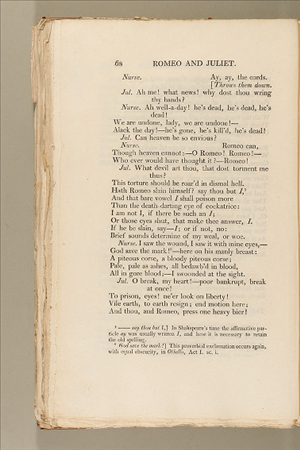 68 ROMEO AND JULIET.
Nurse. Ay, ay, the cords.
[Throws them down.
Jul. Ah me! what news! why dost thou wring
thy hands?
Nurse. Ah well-a-day! he's dead, he's dead, he's
dead!
We are undone, lady, we are undone!—
Alack the day!—he's gone, he's kill'd, he's dead!
Jul. Can heaven be so envious?
Nurse. Romeo can,
Though heaven cannot:—O Romeo! Romeo!—
Who ever would have thought it?—Romeo!
Jul. What devil art thou, that dost torment me
thus?
This torture should be roar'd in dismal hell.
Hath Romeo slain himself? say thou but I,
And that bare vowel I shall poison more
Than the death-darting eye of cockatrice:
I am not I, if there be such an I;
Or those eyes shut, that make thee answer, I.
If he be slain, say—I; or if not, no:
Brief sounds determine of my weal, or woe.
Nurse. I saw the wound, I saw it with mine eyes,—
God save the mark!—here on his manly breast:
A piteous corse, a bloody piteous corse;
Pale, pale as ashes, all bedaub'd in blood,
All in gore blood;—I swoonded at the sight.
Jul. O break, my heart!—poor bankrupt, break
at once!
To prison, eyes! ne'er look on liberty!
Vile earth, to earth resign; end motion here;
And thou, and Romeo, press one heavy bier!
—— say thou but I,] In Shakspeare's time the affirmative par-
ticle ay was usually written I, and here it is necessary to retain
the old spelling.
God save the mark!] This proverbial exclamation occurs again,
with equal obscurity, in Othello, Act I. sc. i.